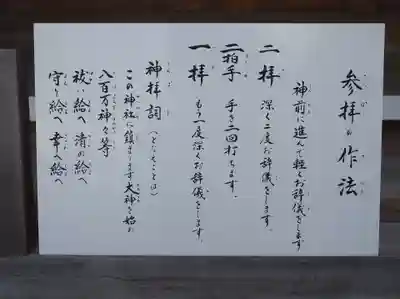 参拝の作法
神前に進んで軽くお辞儀をします
二拝 深く二度お辞儀をします。
二拍手 手を二回打ちます。
一拝 もう一度深くお辞儀をします。
神拝詞(となえことば)
この神社に鎮まります大神を始め
八百万神々等
祓い給へ 清め給へ
守り給へ 幸へ給へ